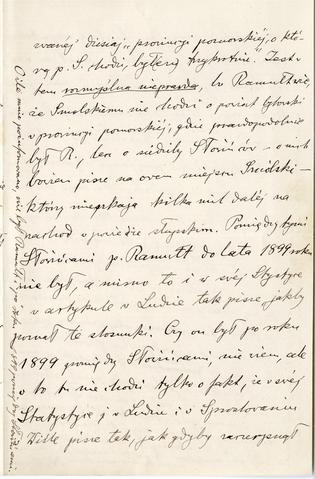 wanéj dzisiaj „prowincji pomorskiéj, o któ-
rą p. S. chodzi, byłem trzykrotnie." Jest w
tem rozmyślna nieprawda, bo Ramułt wie,
że Smolskiemu nie chodzi o powiat bytowski
w prowincji pomorskiéj, gdzie prawdopodobnie
był R., lecz o siedziby Słowińców – o nich
bowiem pisze na owem miejscu Smólski –
którzy mieszkają kilka mil daléj na
zachod w powiecie słupskim. Pomiędzy tymi
Słowińcami p. Ramułt do lata 1899 roku
nie był, a mimo to i w swéj Statystyce
i w artykule w Ludzie tak pisze, jakby
poznał te stosunki. Czy on był po roku
1899 pomiędzy Słowińcami, nie wiem, ale
o to tu nie chodzi tylko o fakt, że w swéj
Statystyce i w Ludzie i w Sprostowaniu
Wiśle pisze tak, jak gdyby zaczerpnął
O ile mnie poinformowano, nie był Ramułt